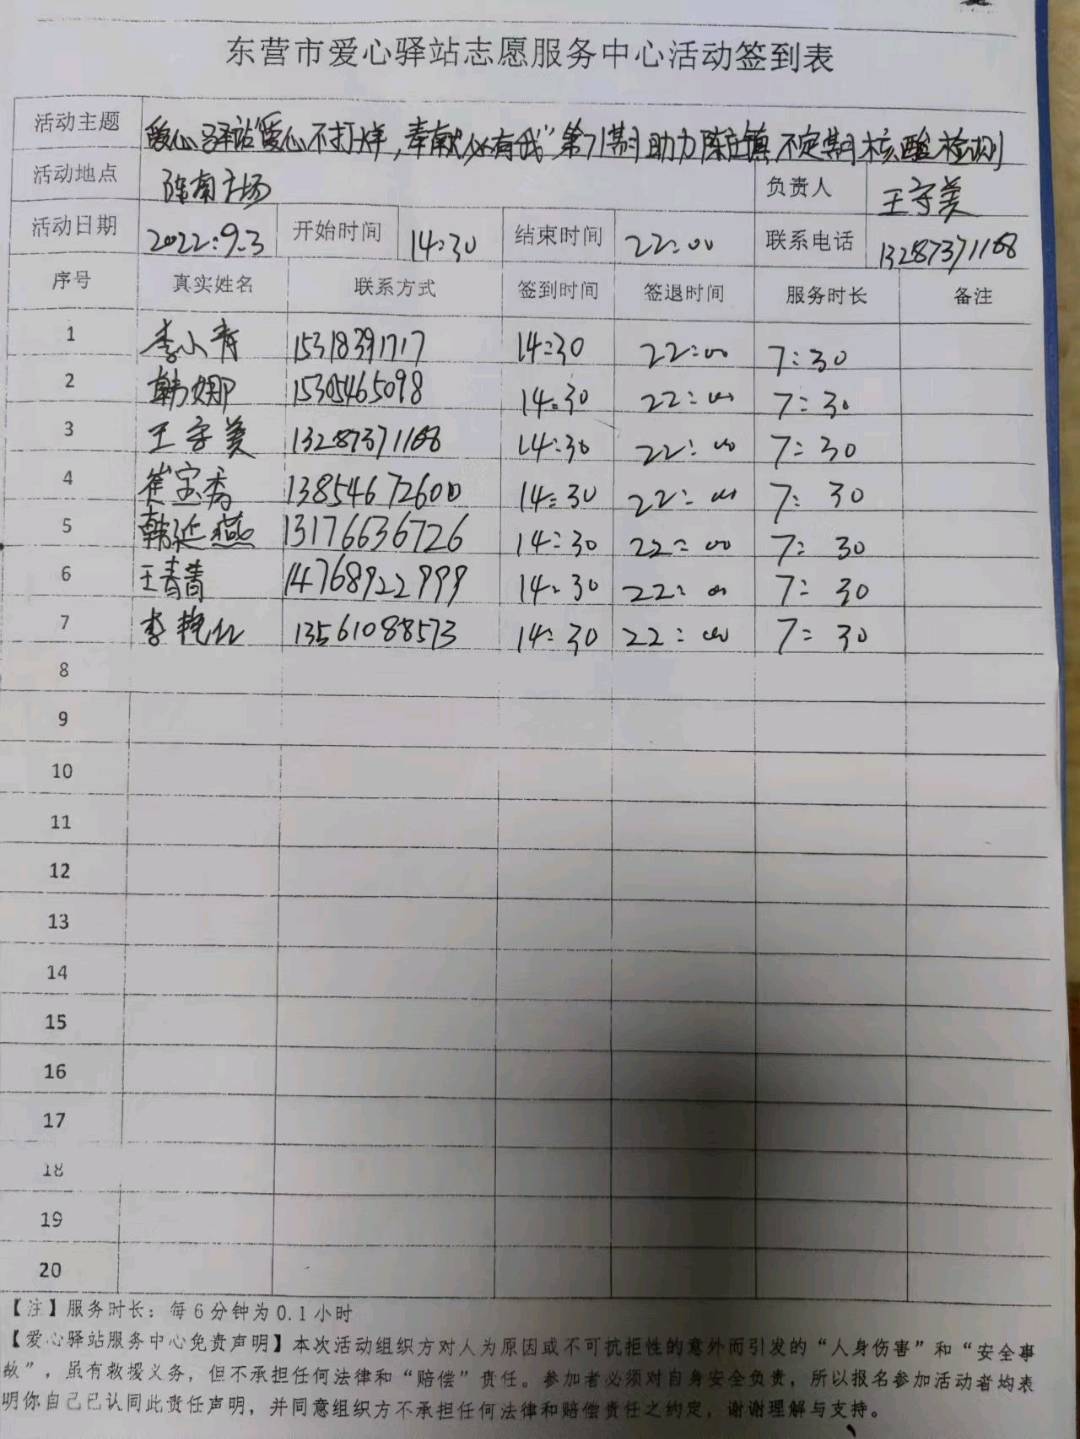 东营市爱心驿站志愿服务中心活动签到表
活动主题 爱心驿站"爱心不打烊,奉献必有我"第71期助力陈庄镇不定期核酸检测
活动地点 陈南广场 负责人 王守美
活动日期 2022:9.3 开始时间 14:30 结束时间 22:00 联系电话 13287371168
序号 真实姓名 联系方式 签到时间 签退时间 服务时长 备注
1 李小青 15318391717 14:30 22:00 7:30
2 韩娜 15305465098 14:30 22:00 7:30
3 王守美 13287371168 14:30 22:00 7:30
4 崔宝秀 13854672600 14:30 22:00 7:30
5 韩延燕 13176636726 14:30 22:00 7:30
6 王青菁 14768922999 14:30 22:00 7:30
7 李艳红 13561088573 14:30 22:00 7:30
8
9
10
11
12
13
14
15
16
17
18
19
20
【注】服务时长:每6分钟为0.1小时
【爱心驿站服务中心免责声明】本次活动组织方对人为原因或不可抗拒性的意外而引发的“人身伤害”和“安全事
故”,虽有救援义务,但不承担任何法律和“赔偿”责任。参加者必须对自身安全负责,所以报名参加活动者均表
明你自己已认同此责任声明,并同意组织方不承担任何法律和赔偿责任之约定,谢谢理解与支持。